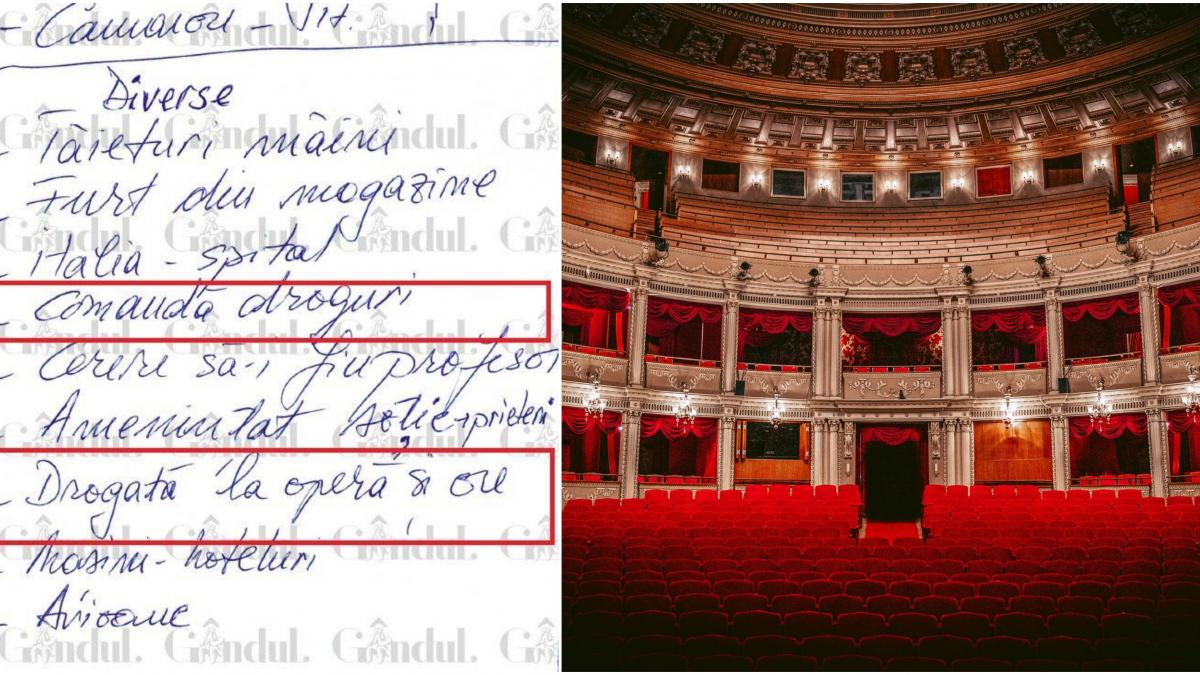 - Cămarou - Vit. i
Diverse
- Tăieturi mâini
- Furt din magazine
- italia - spital
- Comandă droguri
- Cerere să-i fiu profesor
- Amenințat soție + prieteni
- Drogată la operă și ore
- Mașini - hoteluri
-
Gândul.